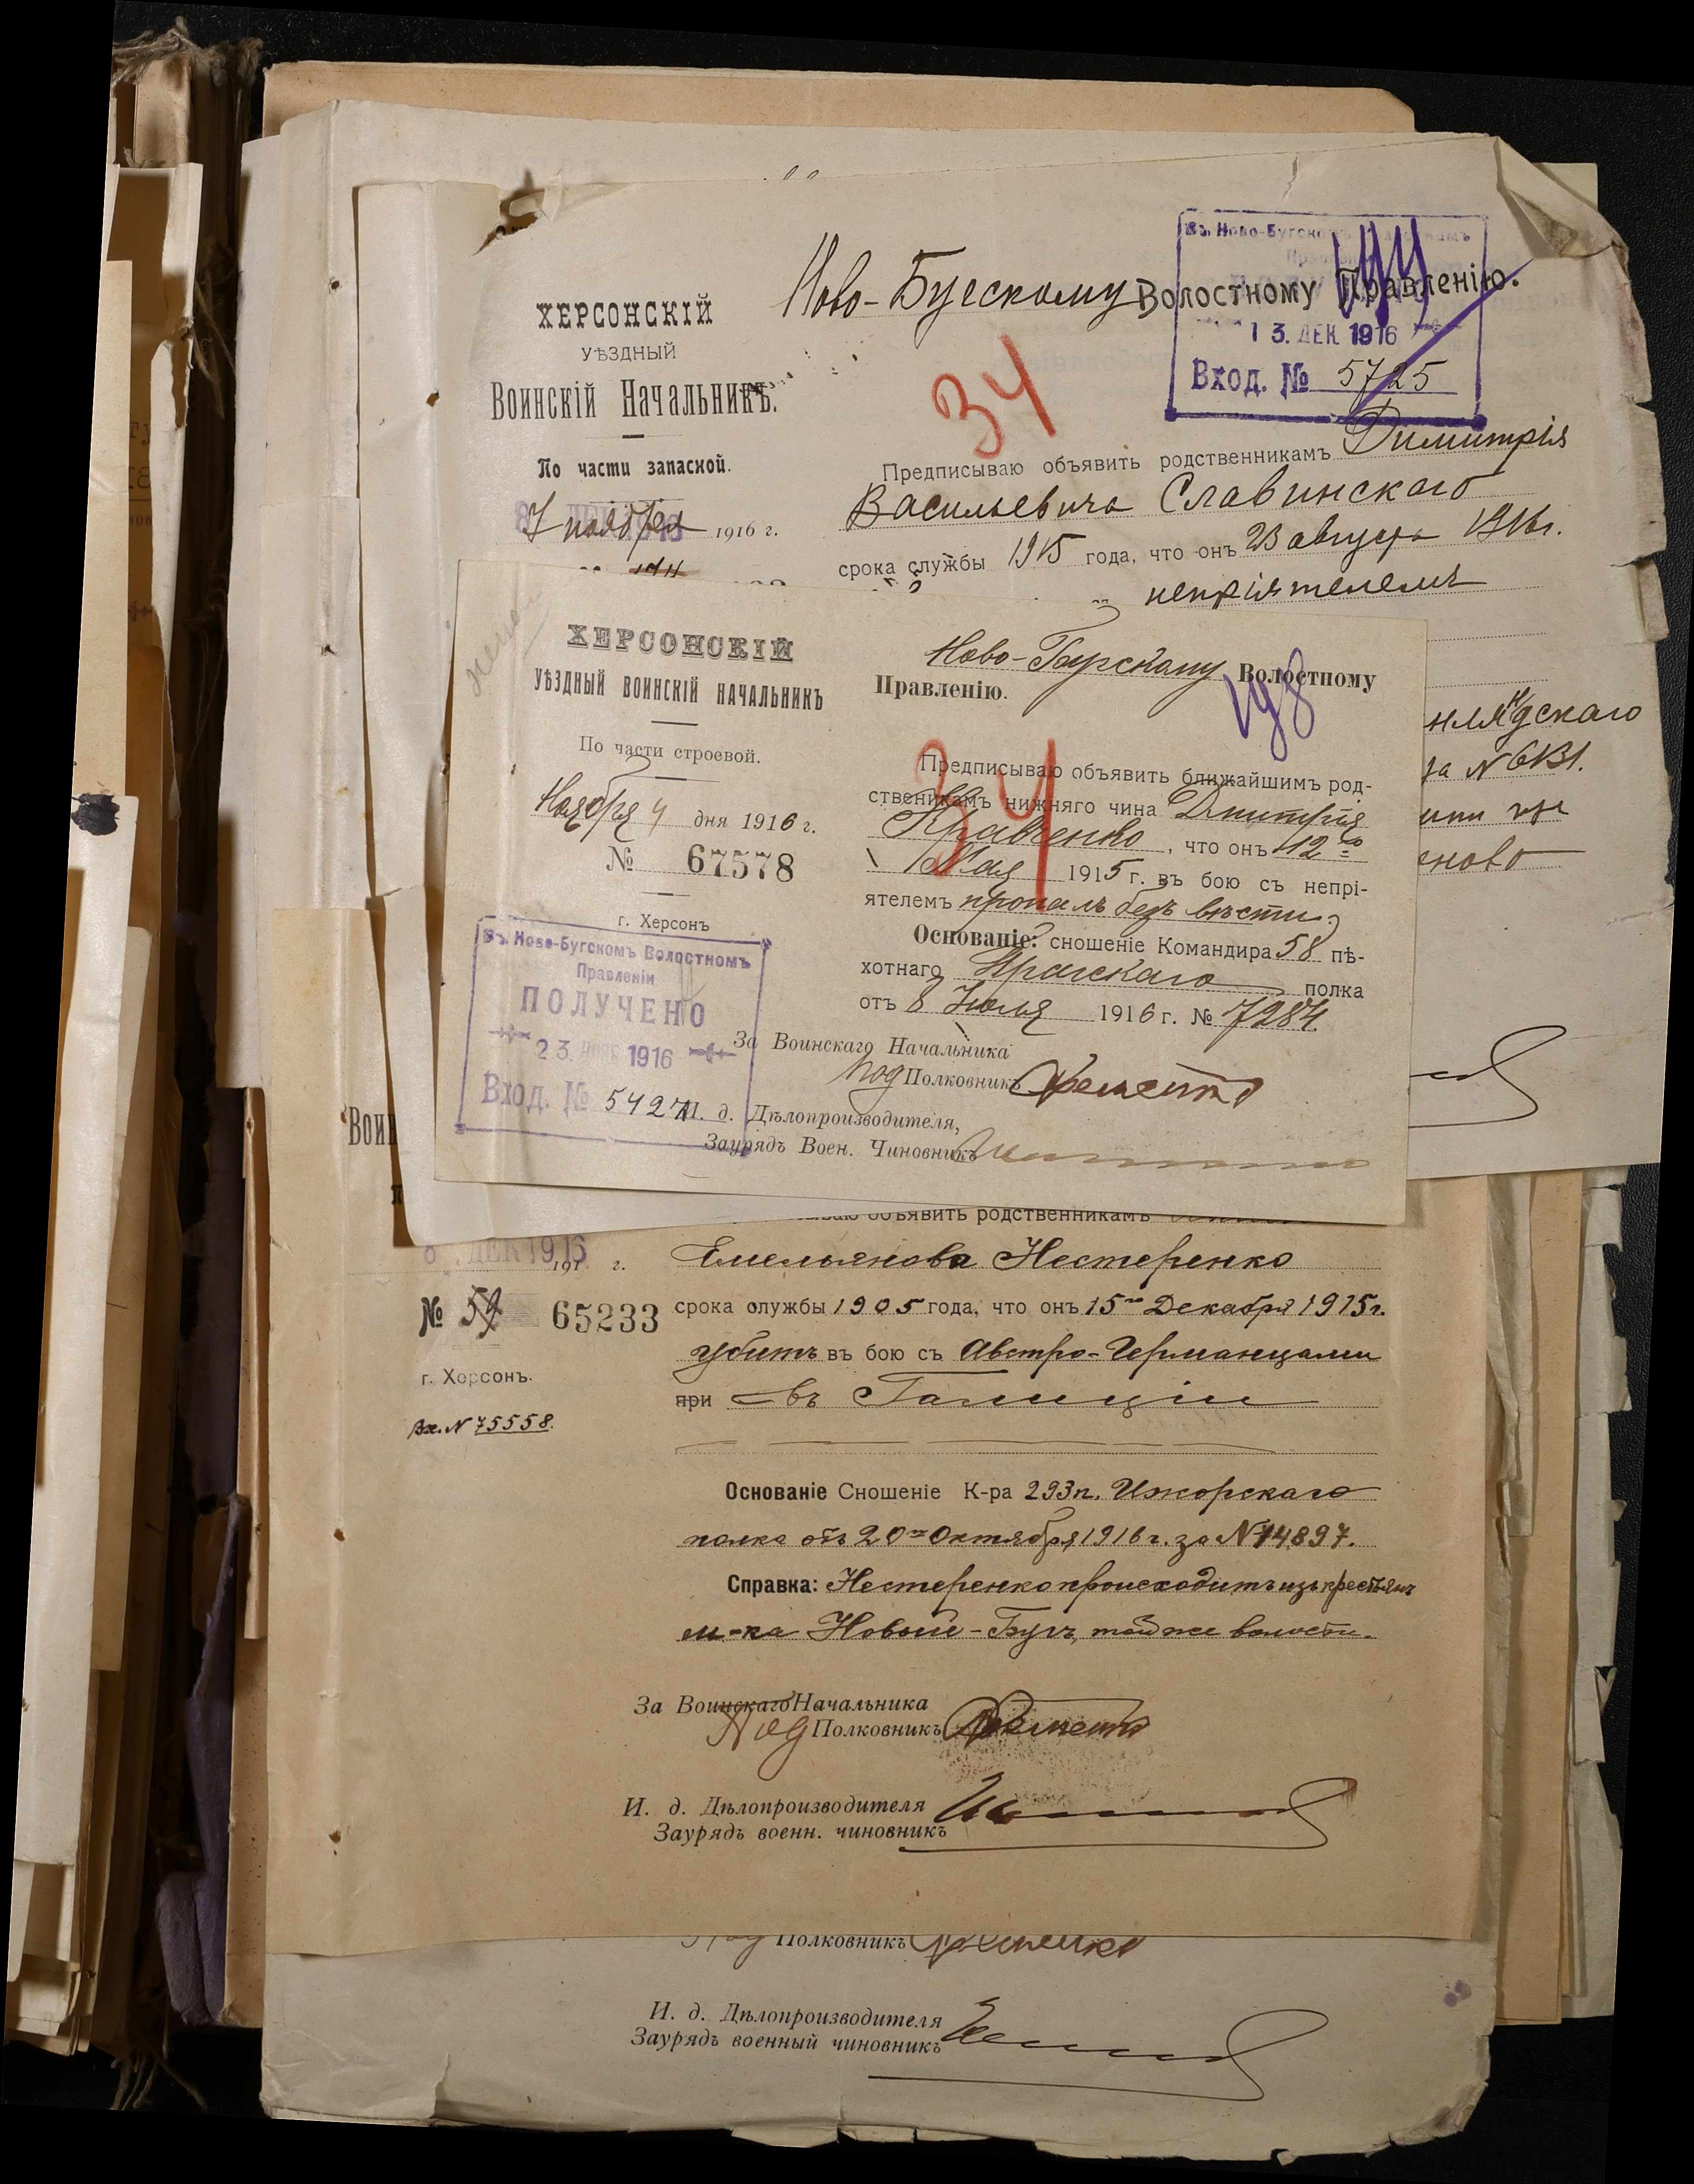 Ново-Бугскому Волостному Правленію.
ХЕРСОНСКІЙ
УѢЗДНЫЙ
ВОИНСКІЙ НАЧАЛЬНИКЪ.
По части запасной.
7 ноября 1916 г.
Въ Ново-Бугскомъ
13. ДЕК. 1916
Вход. № 5725
34
Предписываю объявить родственникамъ Димитрія
Васильевича Славинскаго
срока службы 1915 года, что онъ 23 августа 1916 г.
непріятелемъ
за N 6131.
ХЕРСОНСКІЙ
УѢЗДНЫЙ ВОИНСКІЙ НАЧАЛЬНИКЪ
По части строевой.
Ноября 4 дня 1916 г.
№ 67578
г. Херсонъ
Въ Ново-Бугскомъ Волостномъ
Правленіи
ПОЛУЧЕНО
23. НОЯБ 1916
Вход. № 5427
Ново-Бугскому Волостному
Правленію.
198
34
Предписываю объявить ближайшимъ род-
ственикамъ нижняго чина Дмитрія
Кравченко, что онъ 12го
Мая 1915 г. въ бою съ непрі-
ятелемъ пропалъ безъ вѣсти.
Основаніе: сношеніе Командира 58 пѣ-
хотнаго Прагскаго полка
отъ 8 Іюля 1916 г. № 7284.
За Воинскаго Начальника
Под Полковникъ
И. д. Дѣлопроизводителя,
Заурядъ Воен. Чиновникъ
объявить родственникамъ
8 ДЕК 1916 191 г.
Емельянова Нестеренко
№ 59 65233
срока службы 1905 года, что онъ 15го Декабря 1915 г.
убитъ въ бою съ Австро-Германцами
г. Херсонъ.
при въ Галиціи
Вх. N 75558.
Основаніе Сношеніе К-ра 293 п. Ижорскаго
полка отъ 20го Октября 1916 г. за N 14897.
Справка: Нестеренко происходитъ изъ крестьянъ
м-ка Новый-Бугъ, той же волости.
За Воинскаго Начальника
Под Полковникъ
И. д. Дѣлопроизводителя
Заурядъ военн. чиновникъ
Полковникъ
И. д. Дѣлопроизводителя
Заурядъ военный чиновникъ